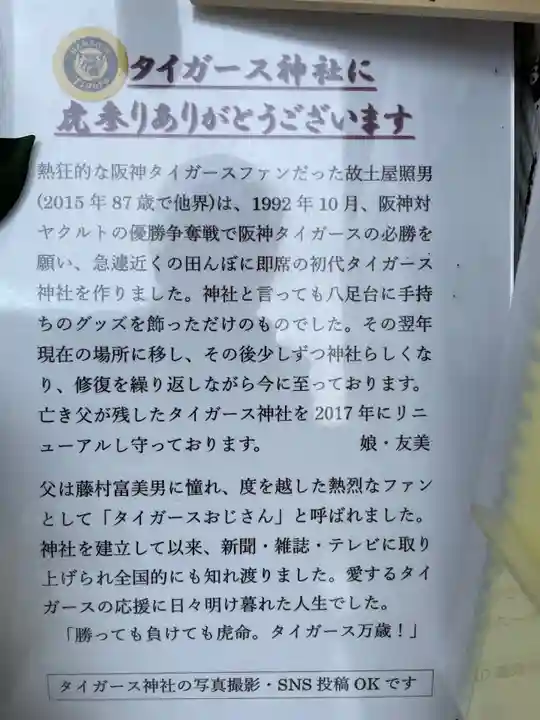 タイガース神社に
虎参りありがとうございます
熱狂的な阪神タイガースファンだった故土屋照男
(2015年87歳で他界)は、1992年10月、阪神対
ヤクルトの優勝争奪戦で阪神タイガースの必勝を
願い、急遽近くの田んぼに即席の初代タイガース
神社を作りました。神社と言っても八足台に手持
ちのグッズを飾っただけのものでした。その翌年
現在の場所に移し、その後少しずつ神社らしくな
り、修復を繰り返しながら今に至っております。
亡き父が残したタイガース神社を2017年にリニ
ューアルし守っております。 娘・友美
父は藤村富美男に憧れ、度を越した熱烈なファン
として「タイガースおじさん」と呼ばれました。
神社を建立して以来、新聞・雑誌・テレビに取り
上げられ全国的にも知れ渡りました。愛するタイ
ガースの応援に日々明け暮れた人生でした。
「勝っても負けても虎命。タイガース万歳！」
タイガース神社の写真撮影・SNS投稿OKです